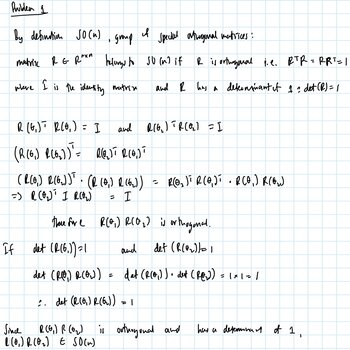 Problem 1
By definition SO(n), group of special orthogonal matrices:
matrix R ∈ R^{n×n} belongs to SO(n) if R is orthogonal i.e. R^T R = R R^T = I
where I is the identity matrix and R has a determinant of 1 : det(R) = 1
R(θ₁)^T R(θ₁) = I and R(θ₂)^T R(θ₂) = I
(R(θ₁) R(θ₂))^T = R(θ₂)^T R(θ₁)^T
(R(θ₁) R(θ₂))^T · (R(θ₁) R(θ₂)) = R(θ₂)^T R(θ₁)^T · R(θ₁) R(θ₂)
=> R(θ₂)^T I R(θ₂) = I
therefore R(θ₁) R(θ₂) is orthogonal.
If det (R(θ₁)) = 1 and det (R(θ₂)) = 1
det (R(θ₁) R(θ₂)) = det (R(θ₁)) · det (R(θ₂)) = 1 × 1 = 1
∴ det (R(θ₁) R(θ₂)) = 1
Since R(θ₁) R(θ₂) is orthogonal and has a determinant of 1,
R(θ₁) R(θ₂) ∈ SO(n)